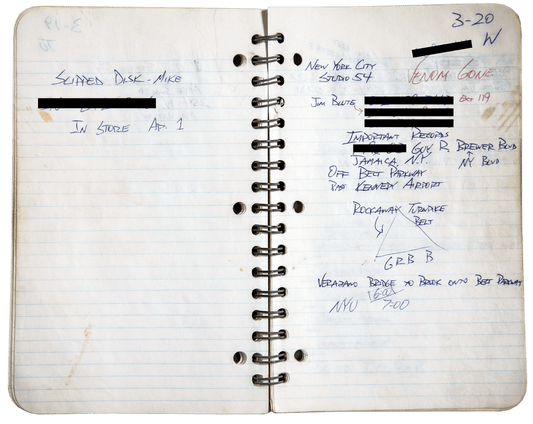 SLIPPED DISK - MIKE
IN STORE AP. 1
3-20
W
NEW YORK CITY
STUDIO 54
VENOM GONE
JIM BLUTE
EXT 119
IMPORTANT RECORDS
GUY R. BREWER BLVD
JAMAICA N.Y.
NY BLVD
OFF BELT PARKWAY
PAST KENNEDY AIRPORT
ROCKAWAY TURNPIKE
BELT
GRB B
VERAZANO BRIDGE TO BROOK ONTO BELT PARKWAY
6:00
NYU 7:00